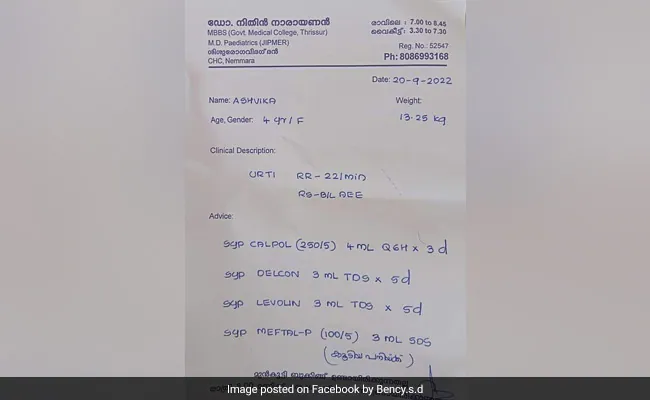 ഡോ. നിതിൻ നാരായണൻ
MBBS (Govt. Medical College, Thrissur)
M.D. Paediatrics (JIPMER)
ശിശുരോഗവിദഗ്ദൻ
CHC, Nemmara
രാവിലെ : 7.00 to 8.45
വൈകീട്ട് : 3.30 to 7.30
Reg. No.: 52547
Ph: 8086993168
Date: 20-9-2022
Name: ASHVIKA
Weight:
Age, Gender: 4 yr / F
13.25 kg
Clinical Description:
URTI RR - 22/min
RS - B/L AEE
Advice:
syp CALPOL (250/5) 4 mL Q6H x 3 d
syp DELCON 3 mL TDS x 5d
syp LEVOLIN 3 mL TDS x 5d
syp MEFTAL-P (100/5) 3 mL SOS
(കൂടിയ പനിയ്ക്ക്)
മുൻകൂട്ടി ബുക്കിങ്ങ്
Image posted on Facebook by Bency.s.d